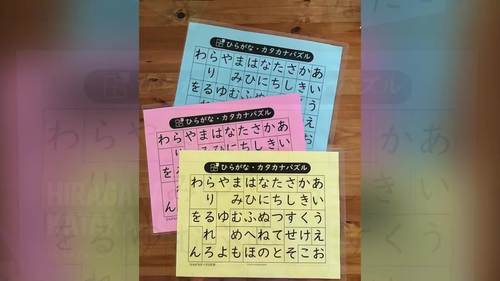 ひらがな・カタカナパズル
わらやまはなたさかあ
り みひにちしきい
をるゆむふぬ う
え
お
ひらがな・カタカナパズル
わらやまはなたさかあ
り みひにちしきい
をる
れ
んろ
ひらがな・カタカナパズル
わらやまはなたさかあ
り みひにちしきい
をるゆむふぬつすくう
れ めへねてせけえ
んろよもほのとそこお